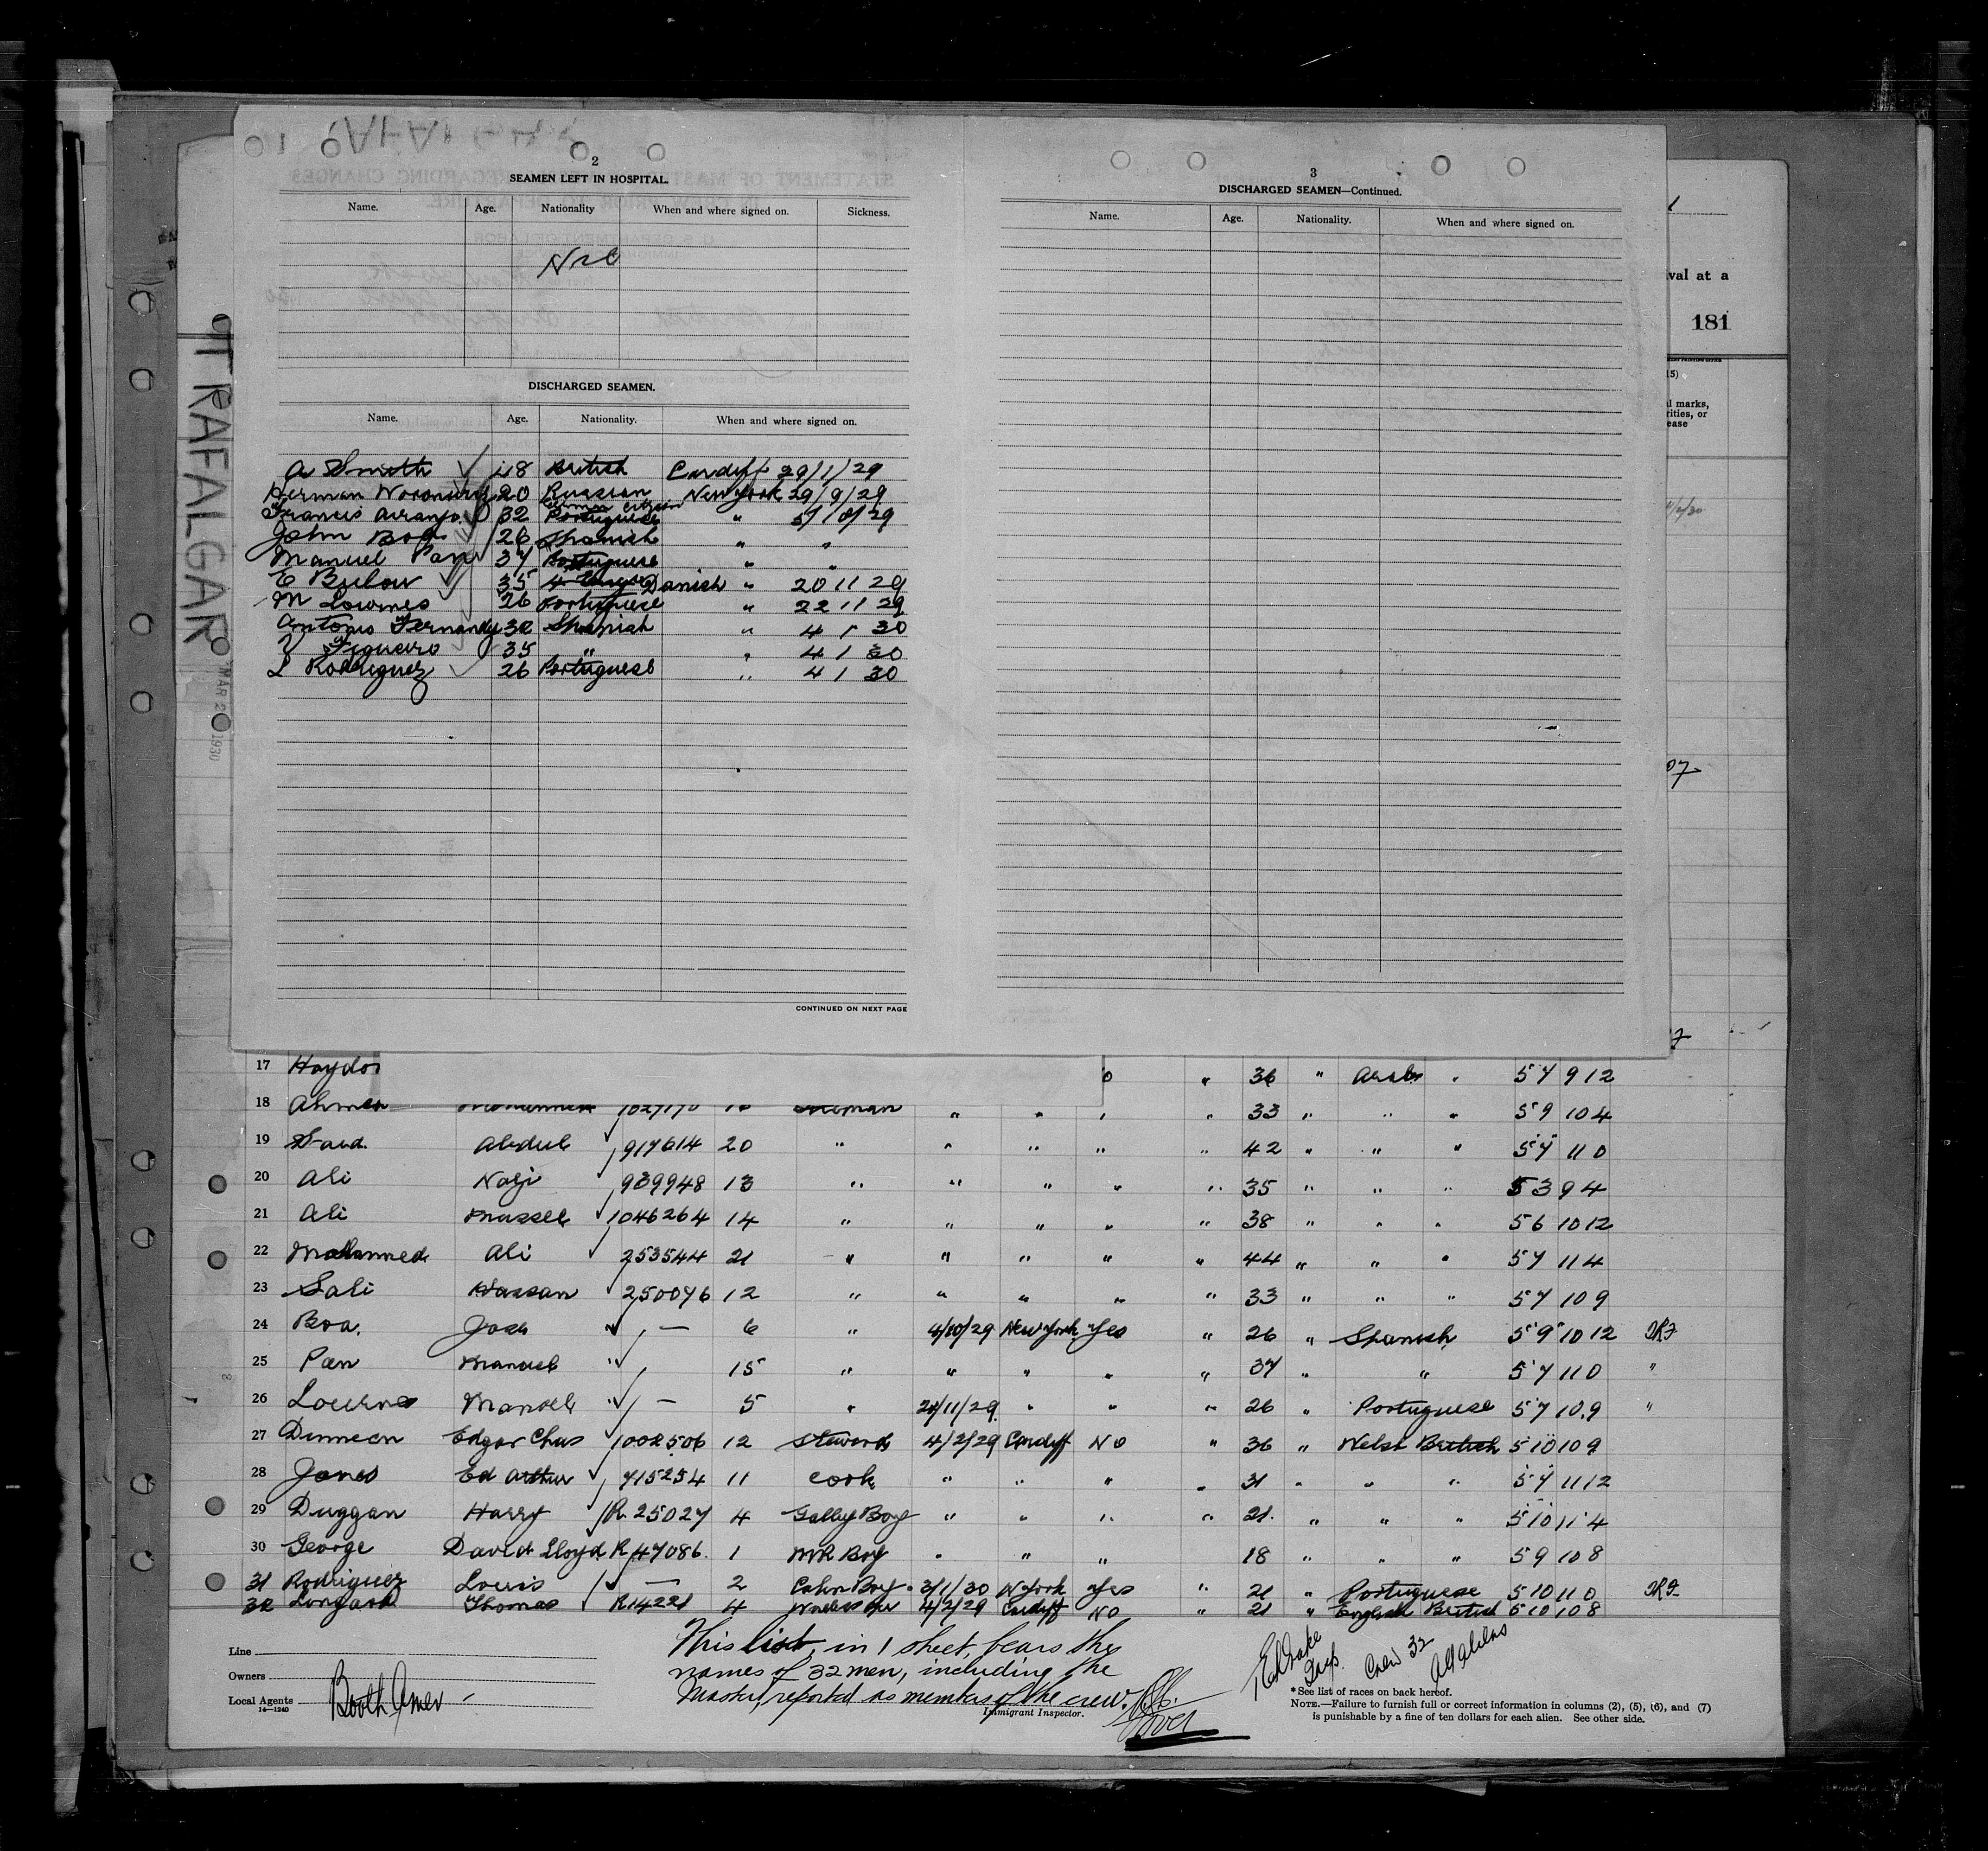 2
SEAMEN LEFT IN HOSPITAL.
Name. Age. Nationality When and where signed on. Sickness.
Nil
DISCHARGED SEAMEN.
Name. Age. Nationality. When and where signed on.
A Smith 18 British Cardiff 29/1/29
Herman 20 Russian New York 29/9/29
Francis Arranjo 32 Portuguese " 5/10/29
John Boa 26 Spanish " "
Manuel Pan 37 Portuguese " "
E Bulow 35 Danish " 20 11 29
M Lowrnes 26 Portuguese " 22 11 29
Antonio Fernandez 32 Spanish " 4 1 30
V Figueiro 35 " " 4 1 30
L Rodriguez 26 Portuguese " 4 1 30
CONTINUED ON NEXT PAGE
3
DISCHARGED SEAMEN—Continued.
Name. Age. Nationality. When and where signed on.
val at a
181
15)
al marks,
rities, or
ease
TRAFALGAR
MAR 2 1930
17 Haydo 36 " Arab " 5 7 9 12
18 Ahmed 33 " " " 5 9 10 4
19 Said. Abdul 917614 20 " " " " " 42 " " " 5 7 11 0
20 Ali Naji 939948 13 " " " " " 35 " " " 5 3 9 4
21 Ali Mussel 1046264 14 " " " " " 38 " " " 5 6 10 12
22 Mohammed Ali 253544 21 " " " " " 44 " " " 5 7 11 4
23 Sali Hassan 250076 12 " " " " " 33 " " " 5 7 10 9
24 Boa. Jose — 6 " 4/10/29 New York Yes " 26 " Spanish 5 9 10 12
25 Pan Manuel 15 " " " " " 37 " " 5 7 11 0 "
26 Lourno Manoel — 5 " 20/11/29 " " " 26 " Portuguese 5 7 10.9 "
27 Dinneen Edgar Chas 1002506 12 Steward 4/2/29 Cardiff No " 36 " Welsh British 5 10 10 9
28 Jones Ed Arthur 715254 11 Cook " " " " 31 " " " 5 7 11 12
29 Duggan Harry R. 25027 4 Galley Boy " " " " 21. " " " 5 10 11 4
30 George David Lloyd R 47086. 1 MR Boy " " " 18 " " " 5 9 10 8
31 Rodriguez Louis — 2 Cabin Boy 3/1/30 N York Yes " 21 " Portuguese 5 10 11 0
32 Thomas R14221 4 Wireless Oper 4/2/29 Cardiff No " 21 " English British 5 10 10 8
This list, in 1 sheet, bears the
names of 32 men, including the
Master, reported as members of the crew.
Crew 32
All Aliens
Line
Owners
Local Agents Booth Amer
14—1240
Immigrant Inspector.
*See list of races on back hereof.
NOTE.—Failure to furnish full or correct information in columns (2), (5), (6), and (7)
is punishable by a fine of ten dollars for each alien. See other side.